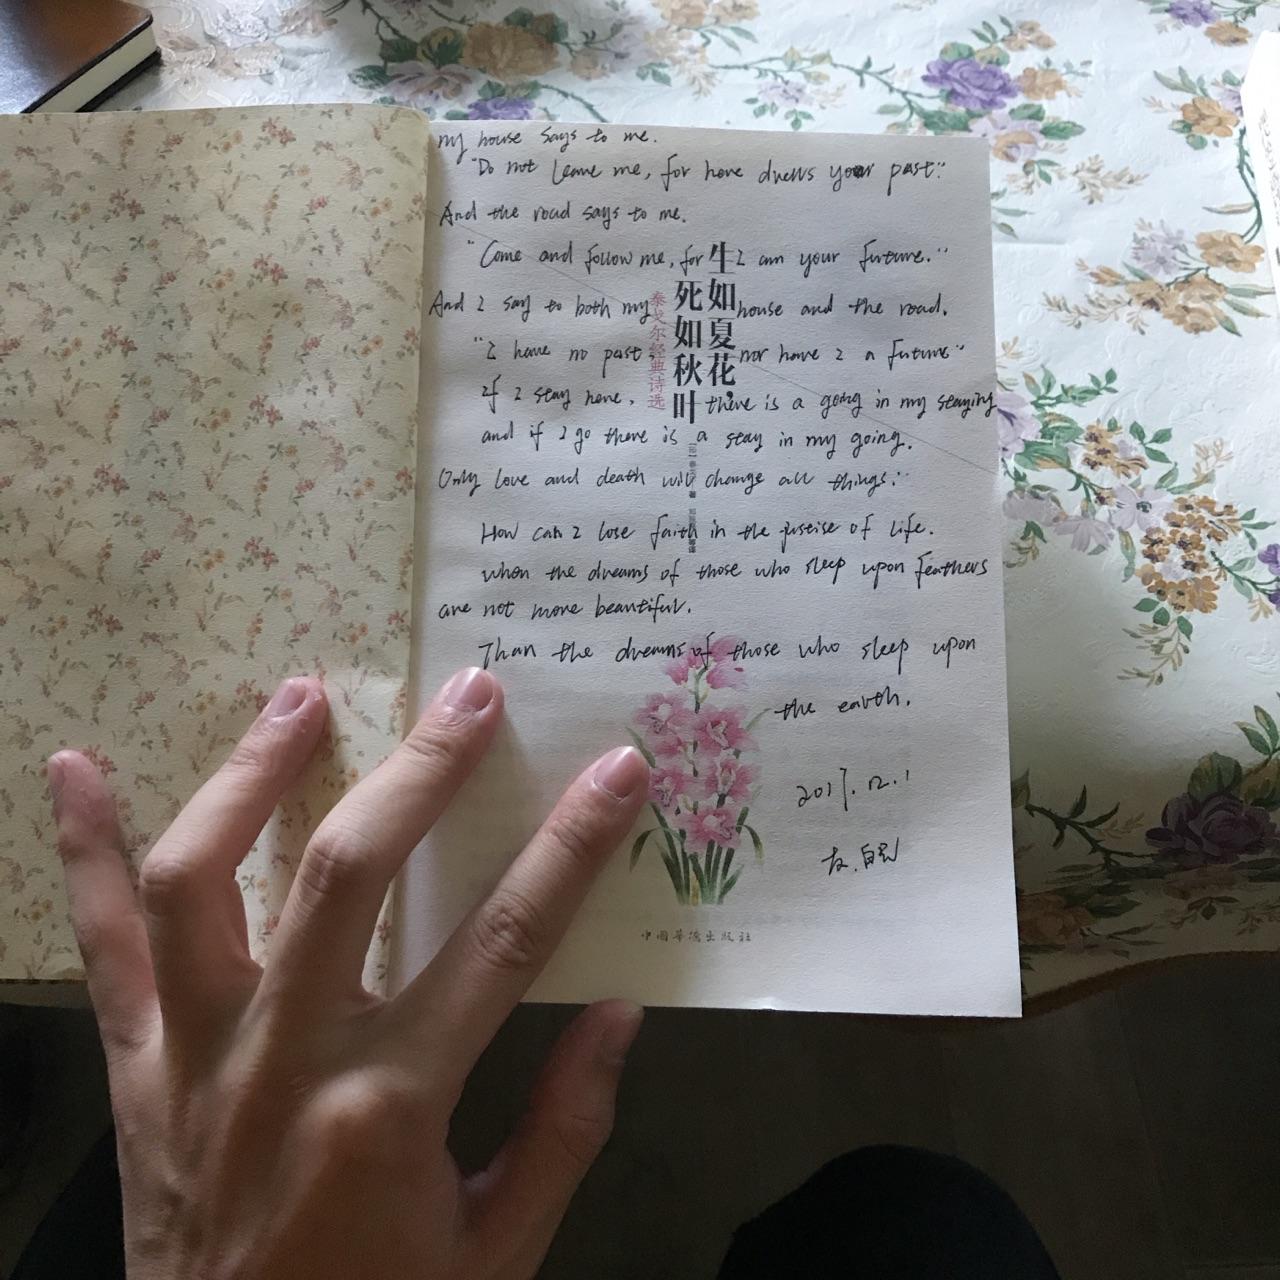 my house says to me.
"Do not leave me, for here dwells your past."
And the road says to me.
"Come and follow me, for I am your future."
And I say to both my house and the road.
"I have no past, nor have I a future"
If I stay here, there is a going in my staying
and if I go there is a stay in my going.
Only love and death will change all things."
How can I lose faith in the justise of life.
when the dreams of those who sleep upon feathers
are not more beautiful.
Than the dreams of those who sleep upon
the earth.
2017.12.1
生如夏花,
死如秋叶
泰戈尔经典诗选
中国华侨出版社